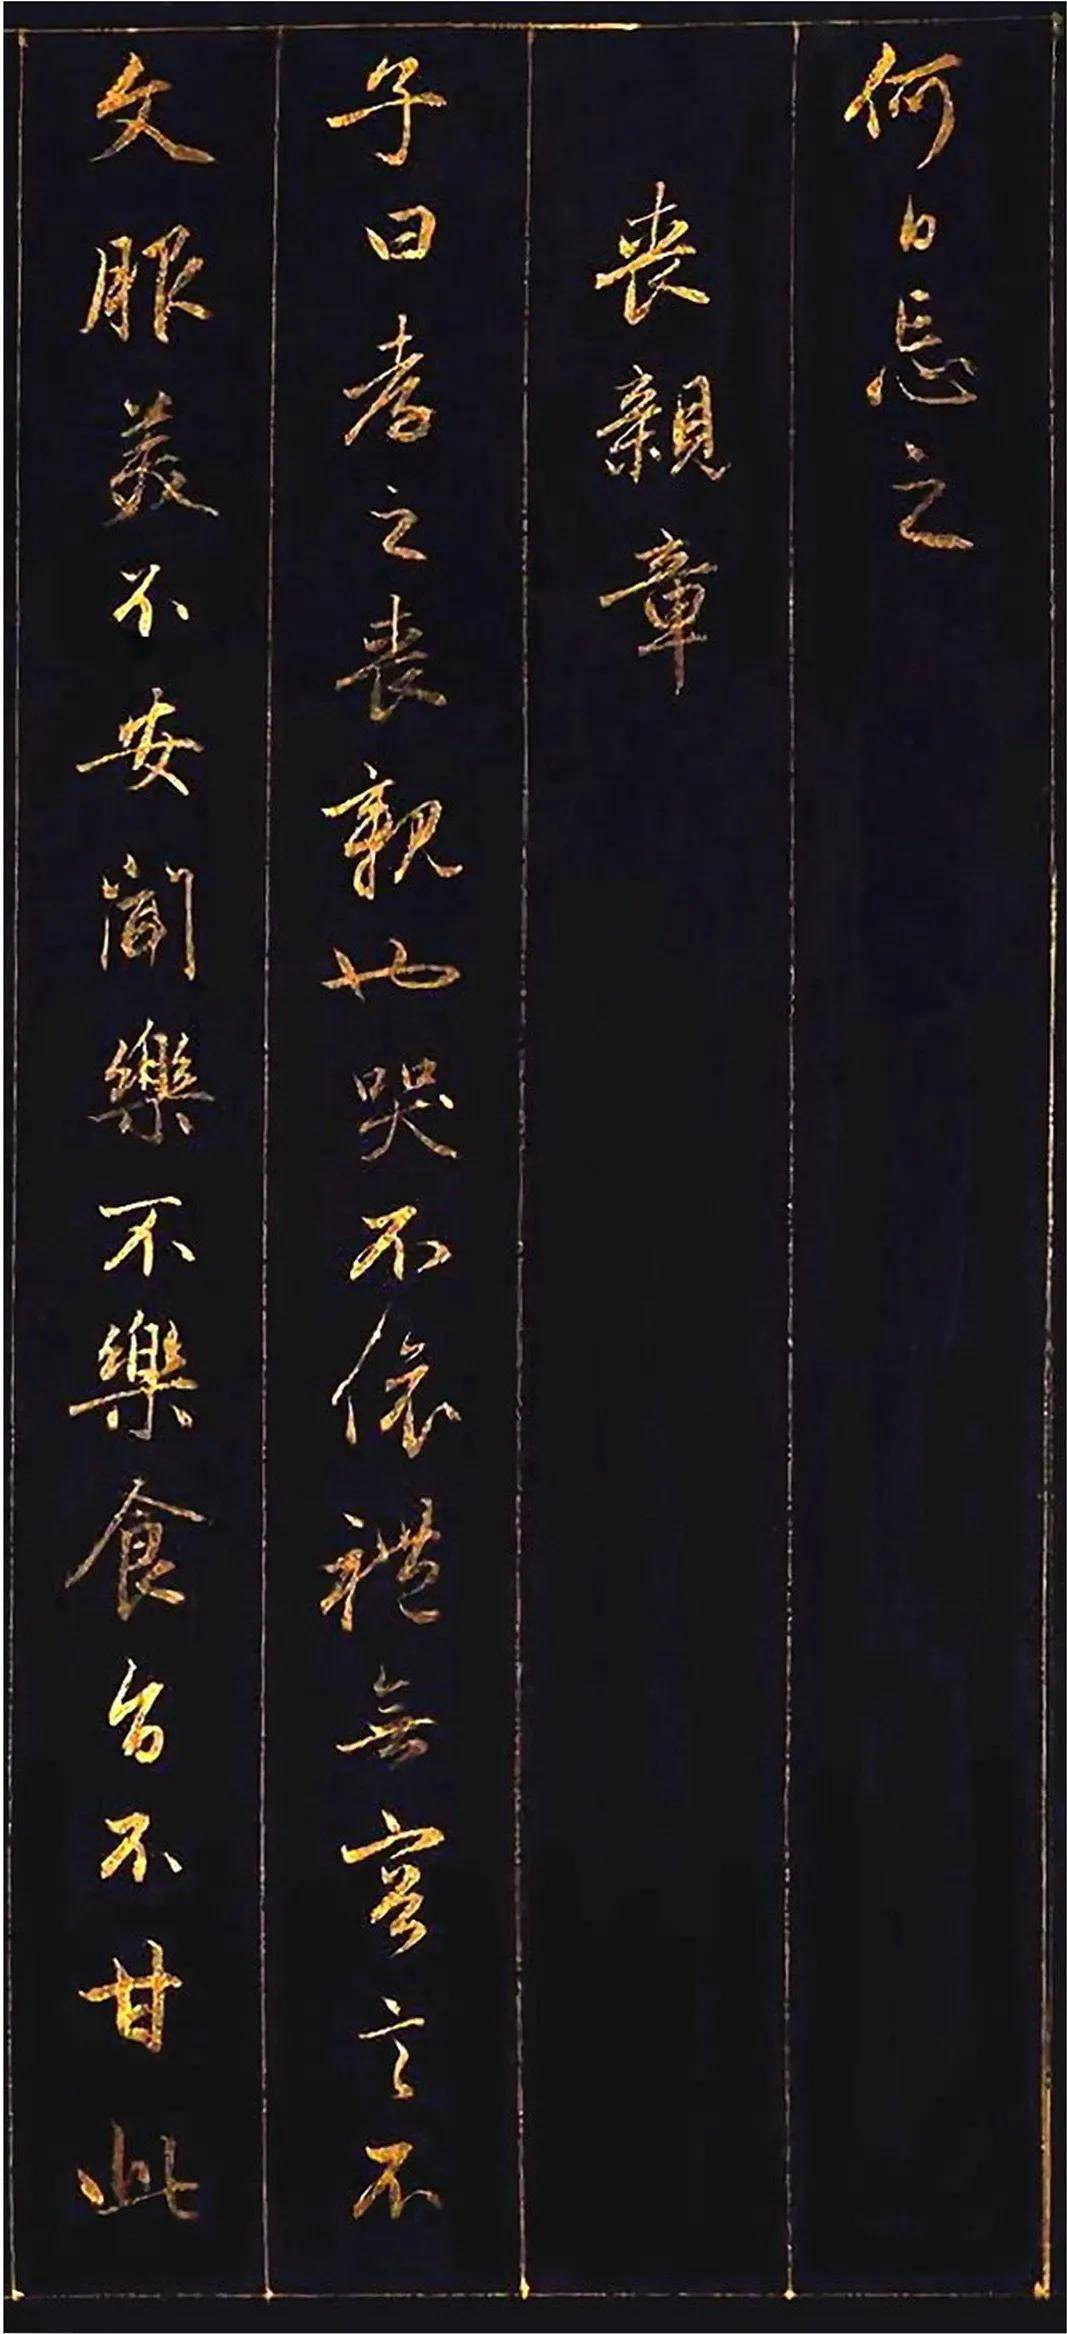 何日忘之
喪親章
子曰孝子之喪親也哭不依禮無容言不
文服美不安聞樂不樂食旨不甘此